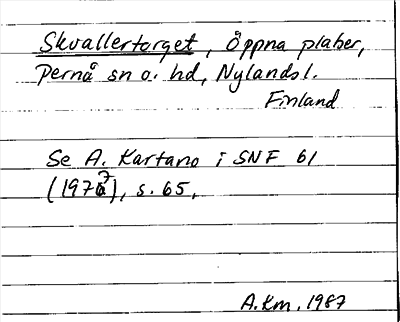 Skvallertorget, Öppna platser,
Pernå sn o. hd, Nylands l.
Finland
Se A. Kartano i SNF 61
(1977), s. 65.
A.Km. 1987